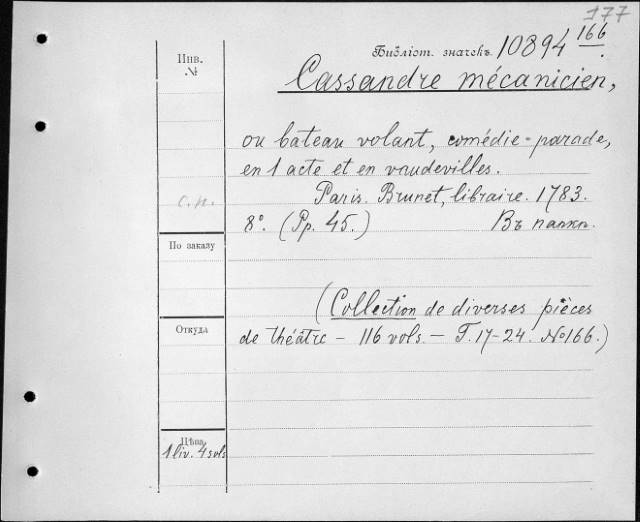 177
Инв.
№
Библіот. значекъ. 10894 166
Cassandre mécanicien,
ou bateau volant, comédie-parade,
en 1 acte et en vaudevilles.
с.п.
Paris. Brunet, libraire. 1783.
8°. (Pp. 45.) Въ папкѣ.
По заказу
(Collection de diverses pièces
Откуда
de théâtre – 116 vols. – T. 17-24. №166.)
Цѣна
1 liv. 4 sols